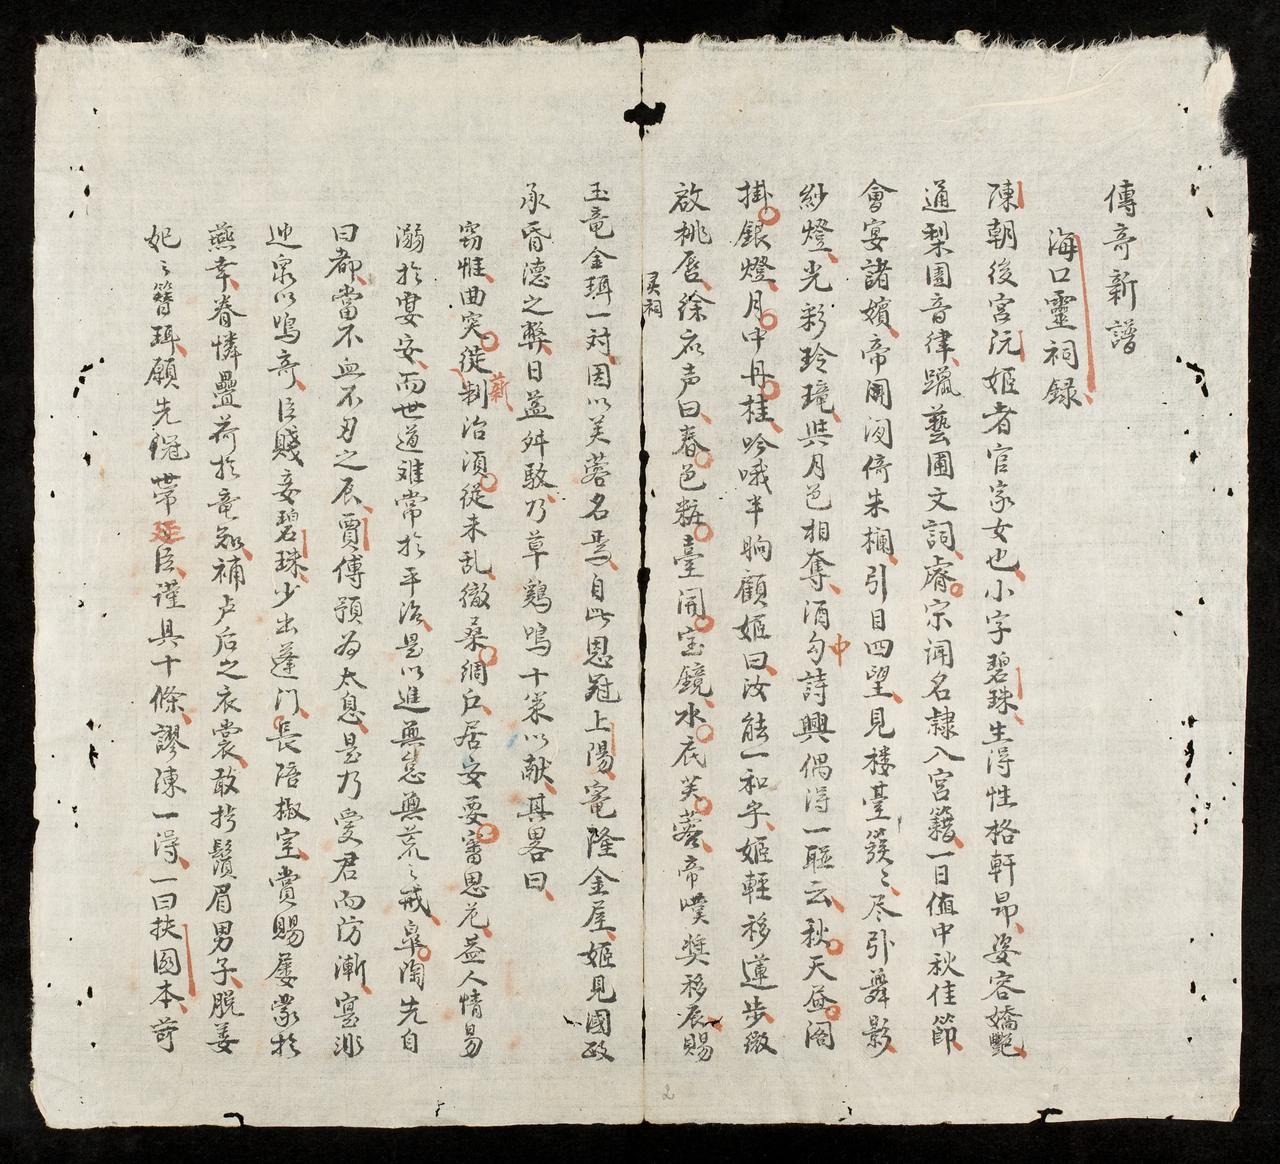 傳奇新譜
海口靈祠录
陳朝後宫阮姬者官家女也小字碧珠生淂性格軒昻姿容嬌艷
通梨園音律躐藝圃文詞睿宗闻名隸入宫籍一日值中秋佳節
會宴諸嬪帝周囬倚朱欄引目四望見楼臺簇〻尽引舞影
紗燈光彩玲瓏與月色相奪酒匀中詩興偶淂一聮云秋天昼阁
掛銀燈月中丹桂吟哦半晌顧姬曰汝能一和乎姬輕移蓮步微
啟桃唇徐右声曰春色粧臺開宝鏡水底芙蓉帝嘆奬移辰賜
灵祠
玉竜金珥一对因以芙蓉名焉自此恩冠上陽寵隆金屋姬見國政
承昏德之弊日益舛駁乃草鷄鳴十策以献其畧曰
窃惟曲突徙薪制治湏從未乱徹桑綢户居安要審思危盖人情易
溺於宴安而世道难常於平治是以進無怠無荒之戒皐陶先自
曰都當不血不刃之辰賈傅預为太息是乃爱君而防漸寔非
迎衆以鳴奇臣賤妾碧珠少出蓬门長陪椒室賞賜屡蒙於
燕幸眷憐疊荷於竜知補卢后之衣裳敢拎鬚眉男子脱姜
妃之簪珥願先冠世帶廷臣谨具十條謬陳一淂一曰扶國本苛